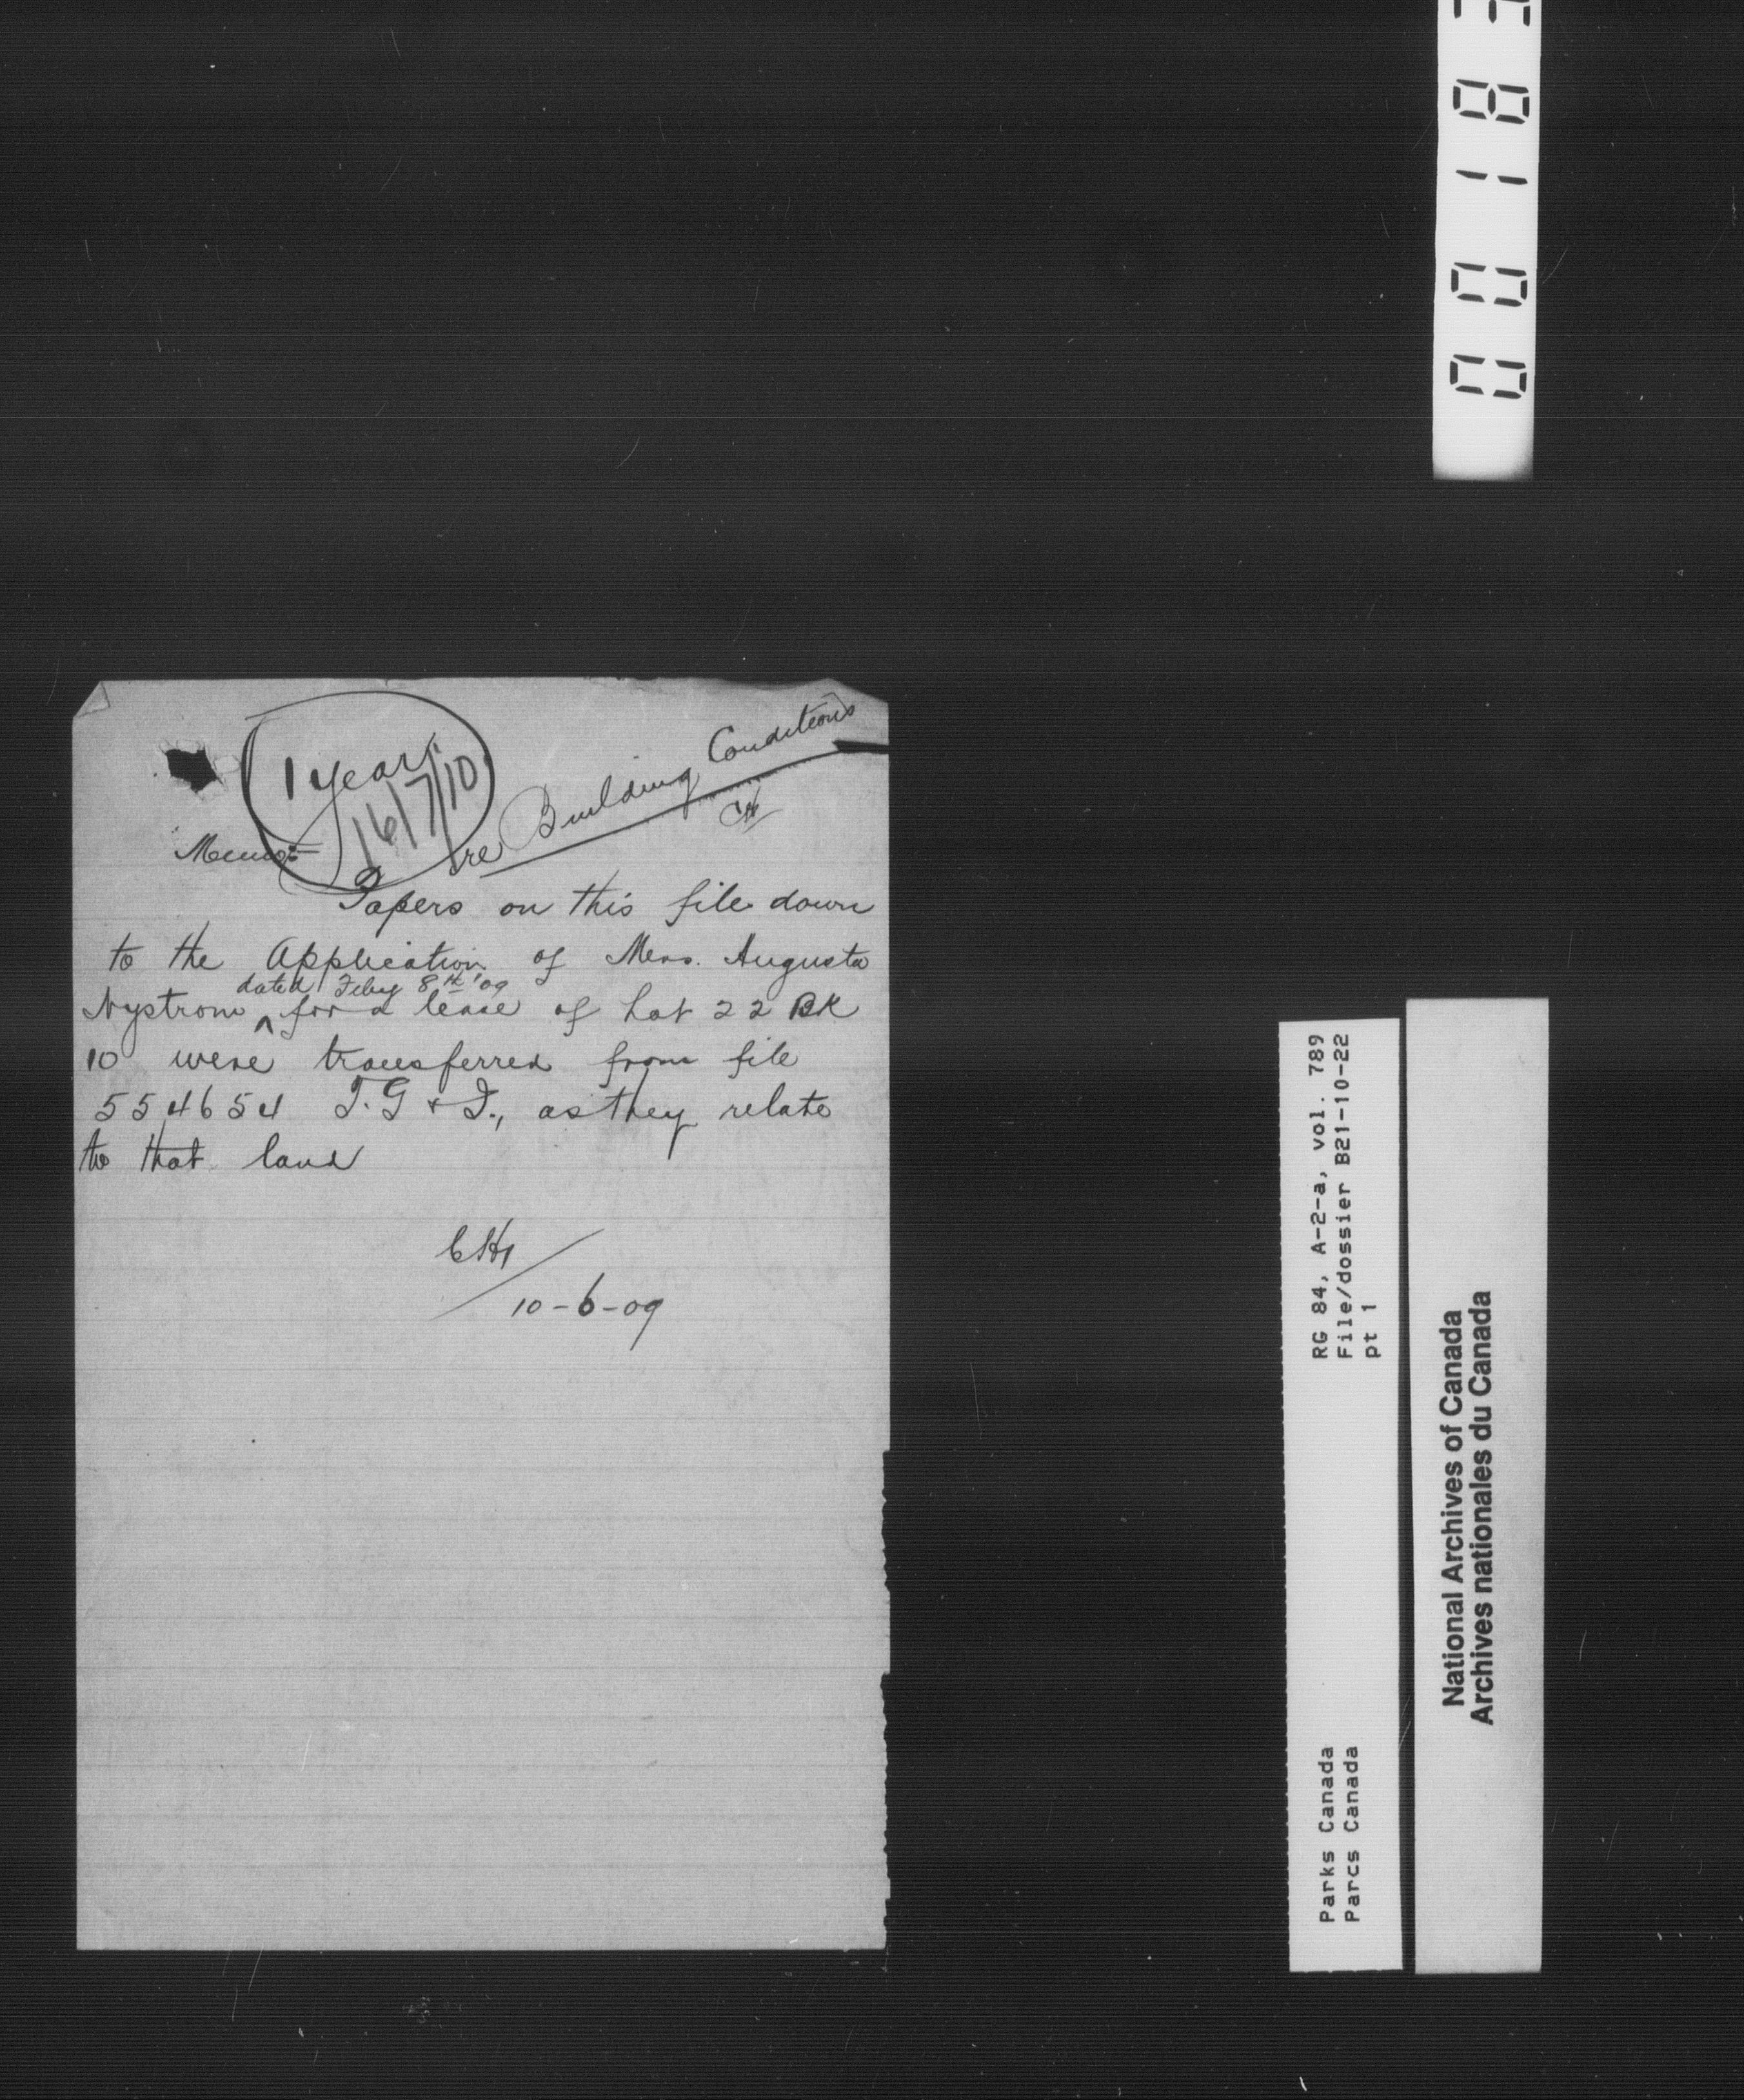 1 year
16/7/10
re Building Conditions
CH
Memo:-
Papers on this file down
to the Application of Mrs. Augusta
dated Feby 8th '09
Nystrom ^ for a lease of Lot 22 BK
10 were transferred from file
554654 T. G & I., as they relate
to that land
CH
10-6-09
RG 84, A-2-a, vol. 789
File/dossier B21-10-22
pt 1
Parks Canada
Parcs Canada
National Archives of Canada
Archives nationales du Canada